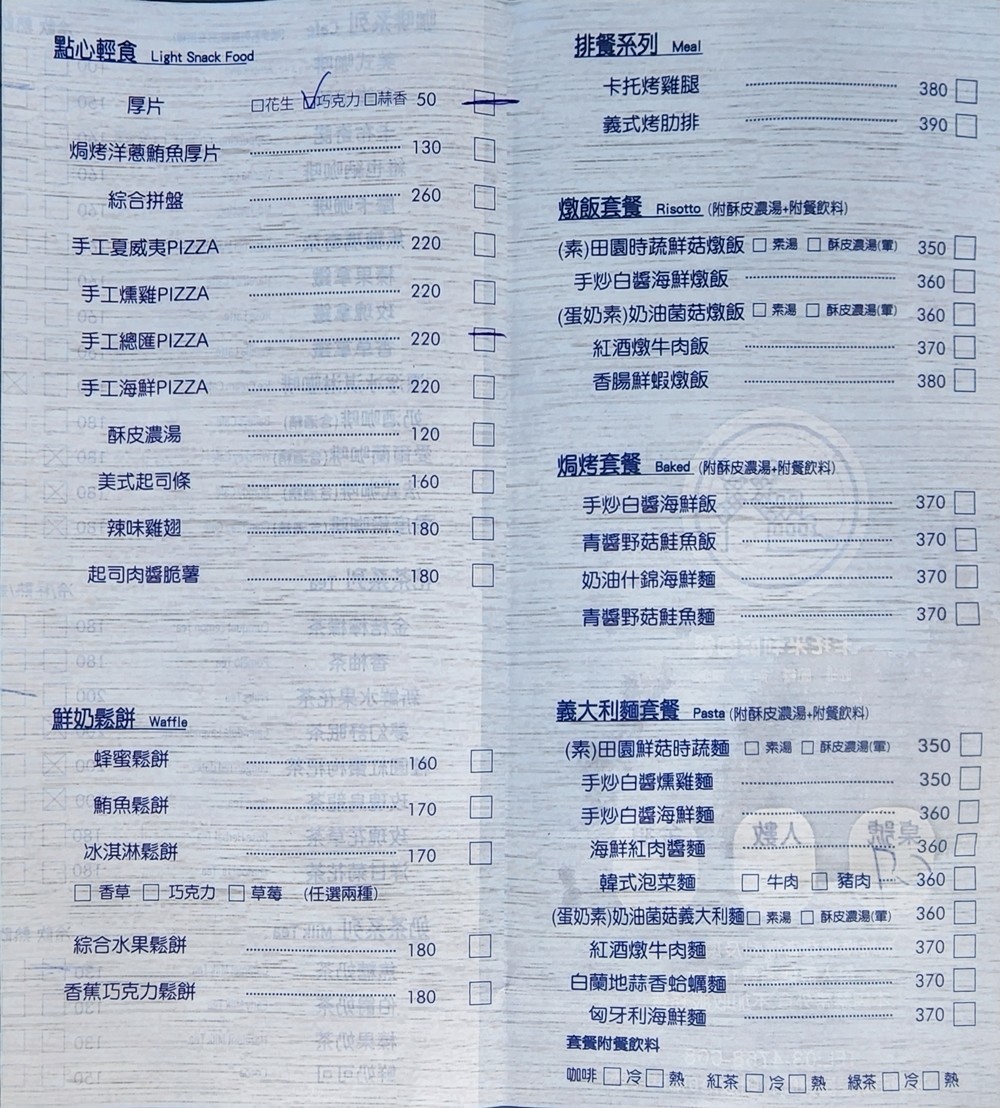 點心輕食 Light Snack Food
厚片 □花生 ☑巧克力 □蒜香 50 □
焗烤洋蔥鮪魚厚片 130 □
綜合拼盤 260 □
手工夏威夷PIZZA 220 □
手工燻雞PIZZA 220 □
手工總匯PIZZA 220 □
手工海鮮PIZZA 220 □
酥皮濃湯 120 □
美式起司條 160 □
辣味雞翅 180 □
起司肉醬脆薯 180 □
鮮奶鬆餅 Waffle
蜂蜜鬆餅 160 □
鮪魚鬆餅 170 □
冰淇淋鬆餅 170 □
□ 香草 □ 巧克力 □ 草莓 (任選兩種)
綜合水果鬆餅 180 □
香蕉巧克力鬆餅 180 □
排餐系列 Meal
卡托烤雞腿 380 □
義式烤肋排 390 □
燉飯套餐 Risotto (附酥皮濃湯+附餐飲料)
(素)田園時蔬鮮菇燉飯 □ 素湯 □ 酥皮濃湯(葷) 350 □
手炒白醬海鮮燉飯 360 □
(蛋奶素)奶油菌菇燉飯 □ 素湯 □ 酥皮濃湯(葷) 360 □
紅酒燉牛肉飯 370 □
香腸鮮蝦燉飯 380 □
焗烤套餐 Baked (附酥皮濃湯+附餐飲料)
手炒白醬海鮮飯 370 □
青醬野菇鮭魚飯 370 □
奶油什錦海鮮麵 370 □
青醬野菇鮭魚麵 370 □
義大利麵套餐 Pasta (附酥皮濃湯+附餐飲料)
(素)田園鮮菇時蔬麵 □ 素湯 □ 酥皮濃湯(葷) 350 □
手炒白醬燻雞麵 350 □
手炒白醬海鮮麵 360 □
海鮮紅肉醬麵 360 □
韓式泡菜麵 □ 牛肉 □ 豬肉 360 □
(蛋奶素)奶油菌菇義大利麵 □ 素湯 □ 酥皮濃湯(葷) 360 □
紅酒燉牛肉麵 370 □
白蘭地蒜香蛤蠣麵 370 □
匈牙利海鮮麵 370 □
套餐附餐飲料
咖啡 □ 冷 □ 熱 紅茶 □ 冷 □ 熱 綠茶 □ 冷 □ 熱